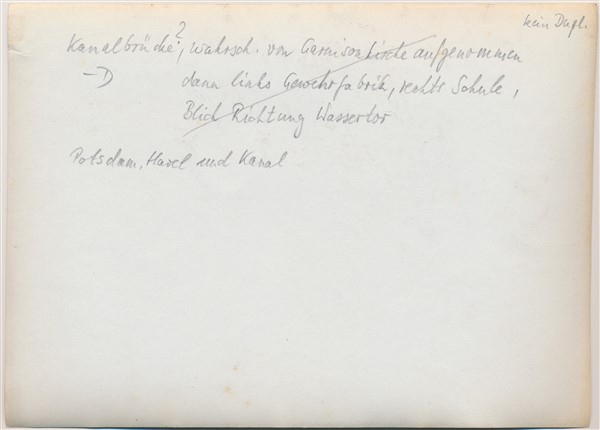 kein Dupl.
Kanalbrücke?, wahrsch. von Garnisonkirche aufgenommen
→D dann links Gewehrfabrik, rechts Schule,
Blick Richtung Wassertor
Potsdam, Havel und Kanal